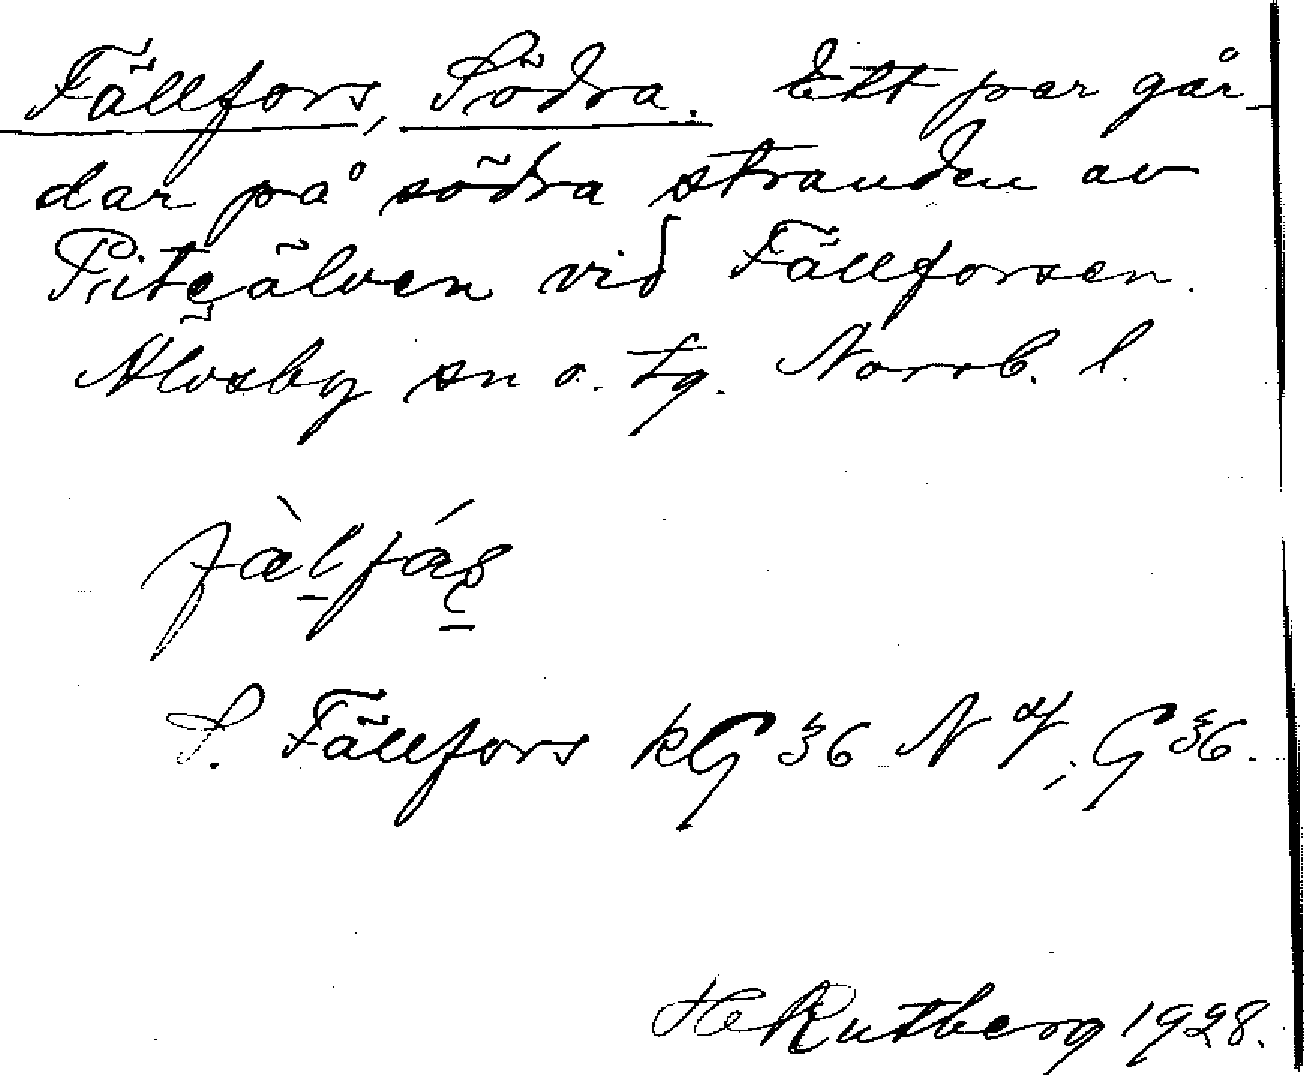 Fällfors, Södra. Ett par går-
dar på södra stranden av
Piteälven vid Fällforsen.
Älvsby sn o. tg. Norrb. l.
S. Fällfors kG 36 N V; G 36.
H Rutberg 1928.